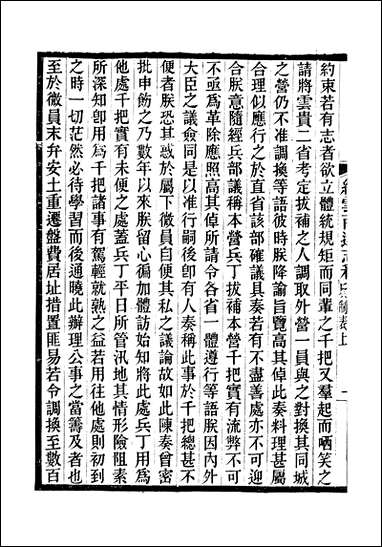 約束若有志者欲立體統規矩而同輩之千把又羣起而哂笑之
請將雲貴二省考定拔補之人調取外營一員與之對換其同城
之營仍不准調換等語彼時朕降諭旨覽高其倬此奏料理甚屬
合理似應行之於直省該部確議具奏若有不盡善處亦不可迎
合朕意隨經兵部議稱本營兵丁拔補本營千把實有流弊不可
不亟爲革除應照高其倬所請令各省一體遵行等語朕因內外
大臣之議僉同是以准行嗣後卽有人奏稱此事於千把總甚不
便者朕恐其惑於屬下微員自便其私之議論故如此陳奏曾密
批申飭之乃數年以來朕留心徧加體訪始知將此處兵丁用爲
他處千把實有未便之處蓋兵丁平日所管汛地其情形險阻素
所深知卽用爲千把諸事有駕輕就熟之益若用往他處則初到
之時一切茫然必待學習而後通曉此辦理公事之當籌及者也
至於微員末弁安土重遷盤費居址措置匪易若令調換至數百